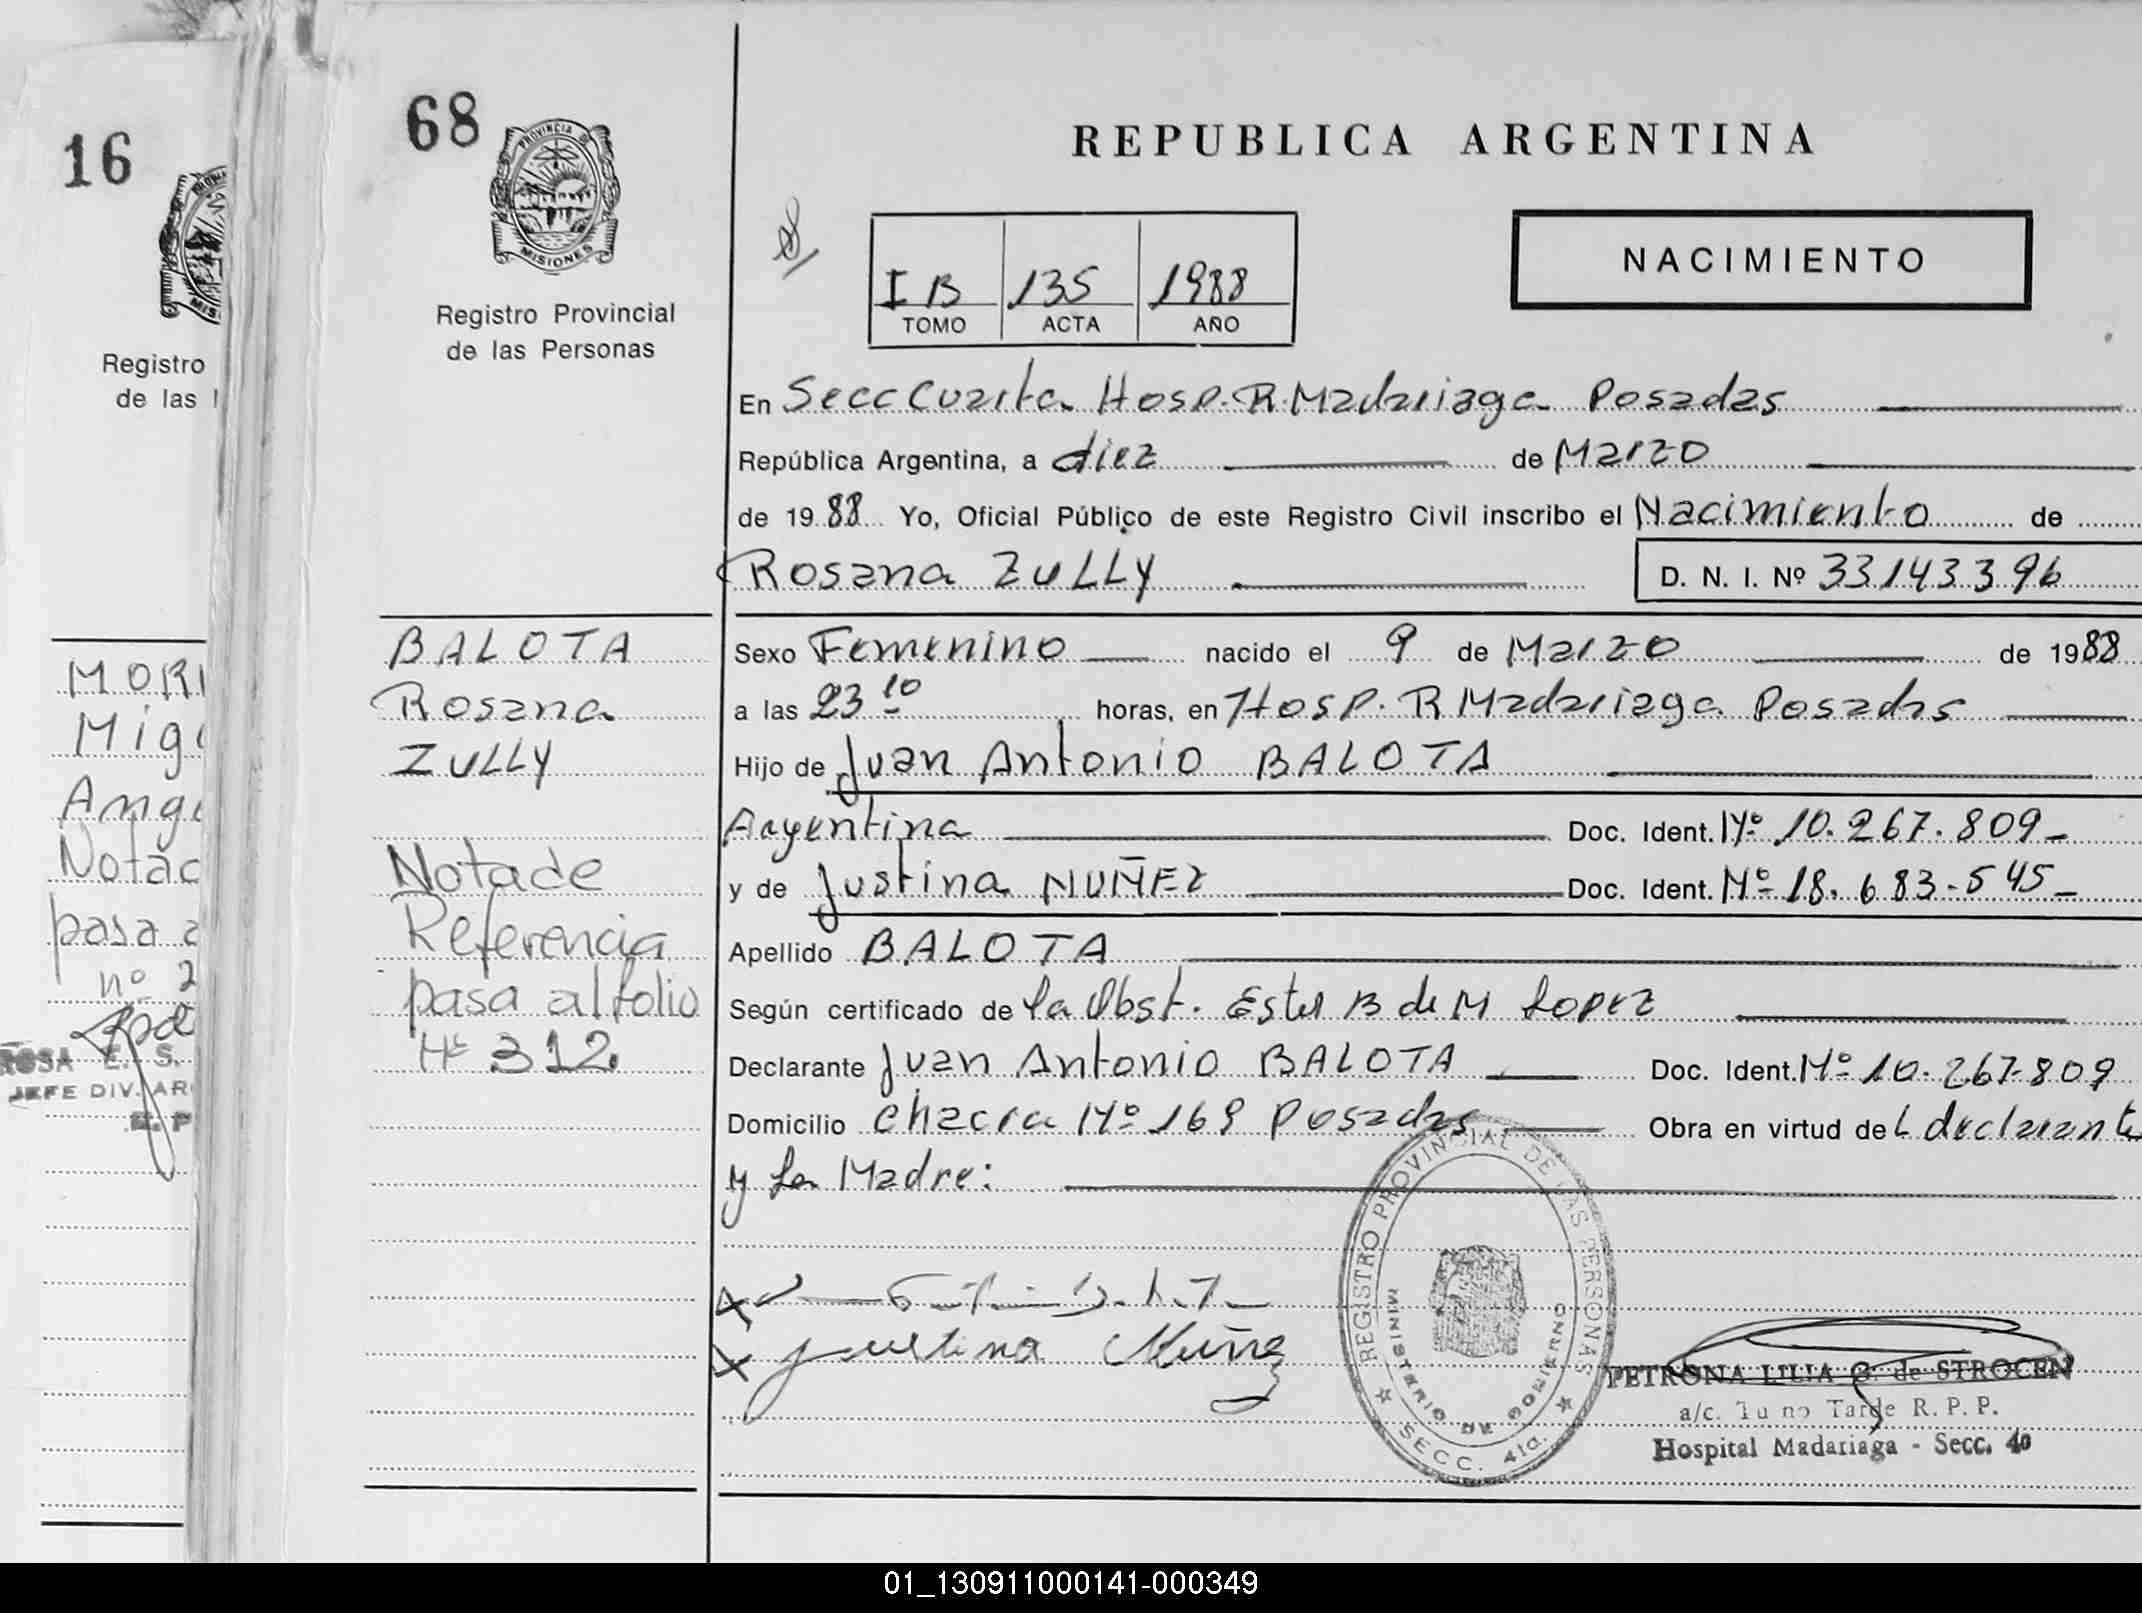 16
Registro
de las
MORI
Mig
Ange
Notac
pasa a
nº 2
ROSA E. S.
JEFE DIV. AR
68
PROVINCIA DE
MISIONES
Registro Provincial
de las Personas
BALOTA
Rosana
ZULLY
Nota de
Referencia
pasa al folio
Nº 312
REPUBLICA ARGENTINA
NACIMIENTO
I B 135 1988
TOMO ACTA AÑO
En Secc Cuarta Hosp. R. Madariaga Posadas
República Argentina, a diez de Marzo
de 1988 Yo, Oficial Público de este Registro Civil inscribo el Nacimiento de
Rosana ZULLY D. N. I. Nº 33143396
Sexo Femenino nacido el 9 de Marzo de 1988
a las 23 10 horas, en Hosp. R Madariaga Posadas
Hijo de Juan Antonio BALOTA
Argentina Doc. Ident. Nº 10.267.809
y de Justina NUÑEZ Doc. Ident. Nº 18.683.545
Apellido BALOTA
Según certificado de la Obst. Ester B de M Lopez
Declarante Juan Antonio BALOTA Doc. Ident. Nº 10.267.809
Domicilio chacra Nº 169 Posadas Obra en virtud del declarante
y la Madre:
Justina Nuñez
REGISTRO PROVINCIAL DE LAS PERSONAS
MINISTERIO DE GOBIERNO
SECC. 4ta.
PETRONA LILIA G. de STROCEN
a/c. Tu no Tarde R. P. P.
Hospital Madariaga - Secc. 4a
01_130911000141-000349